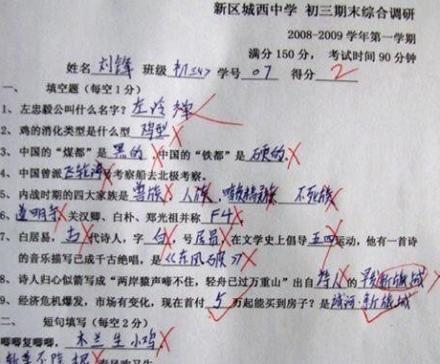 新区城西中学 初三期末综合调研
2008-2009 学年第一学期
满分 150 分， 考试时间 90 分钟
姓名 刘锋 班级 初三 学号 07 得分 2
一、 填空题（每空 1 分）
1、左忠毅公叫什么名字？左冷禅
2、鸡的消化类型是什么型 鸡型
3、中国的“煤都”是 黑的，中国的“铁都”是 硬的。
4、中国曾派 号考察船去北极考察。
5、内战时期的四大家族是 兽族 人族、暗夜精灵族 不死族
6、道明寺 关汉卿、白朴、郑光祖并称 F4
7、白居易，古 代诗人，字 白，号 居易 在文学史上倡导 五四 运动，他有一首诗
的音乐描写已成千古绝唱，是《东风破》
8、诗人归心似箭写成“两岸猿声啼不住，轻舟已过万重山”出自 诗人 的
9、经济危机爆发，市场有变化，现在首付 5 万起能买到房子？是 新旗城
二、 短句填写（每空 2 分）
唧唧复唧唧，木兰生小鸡